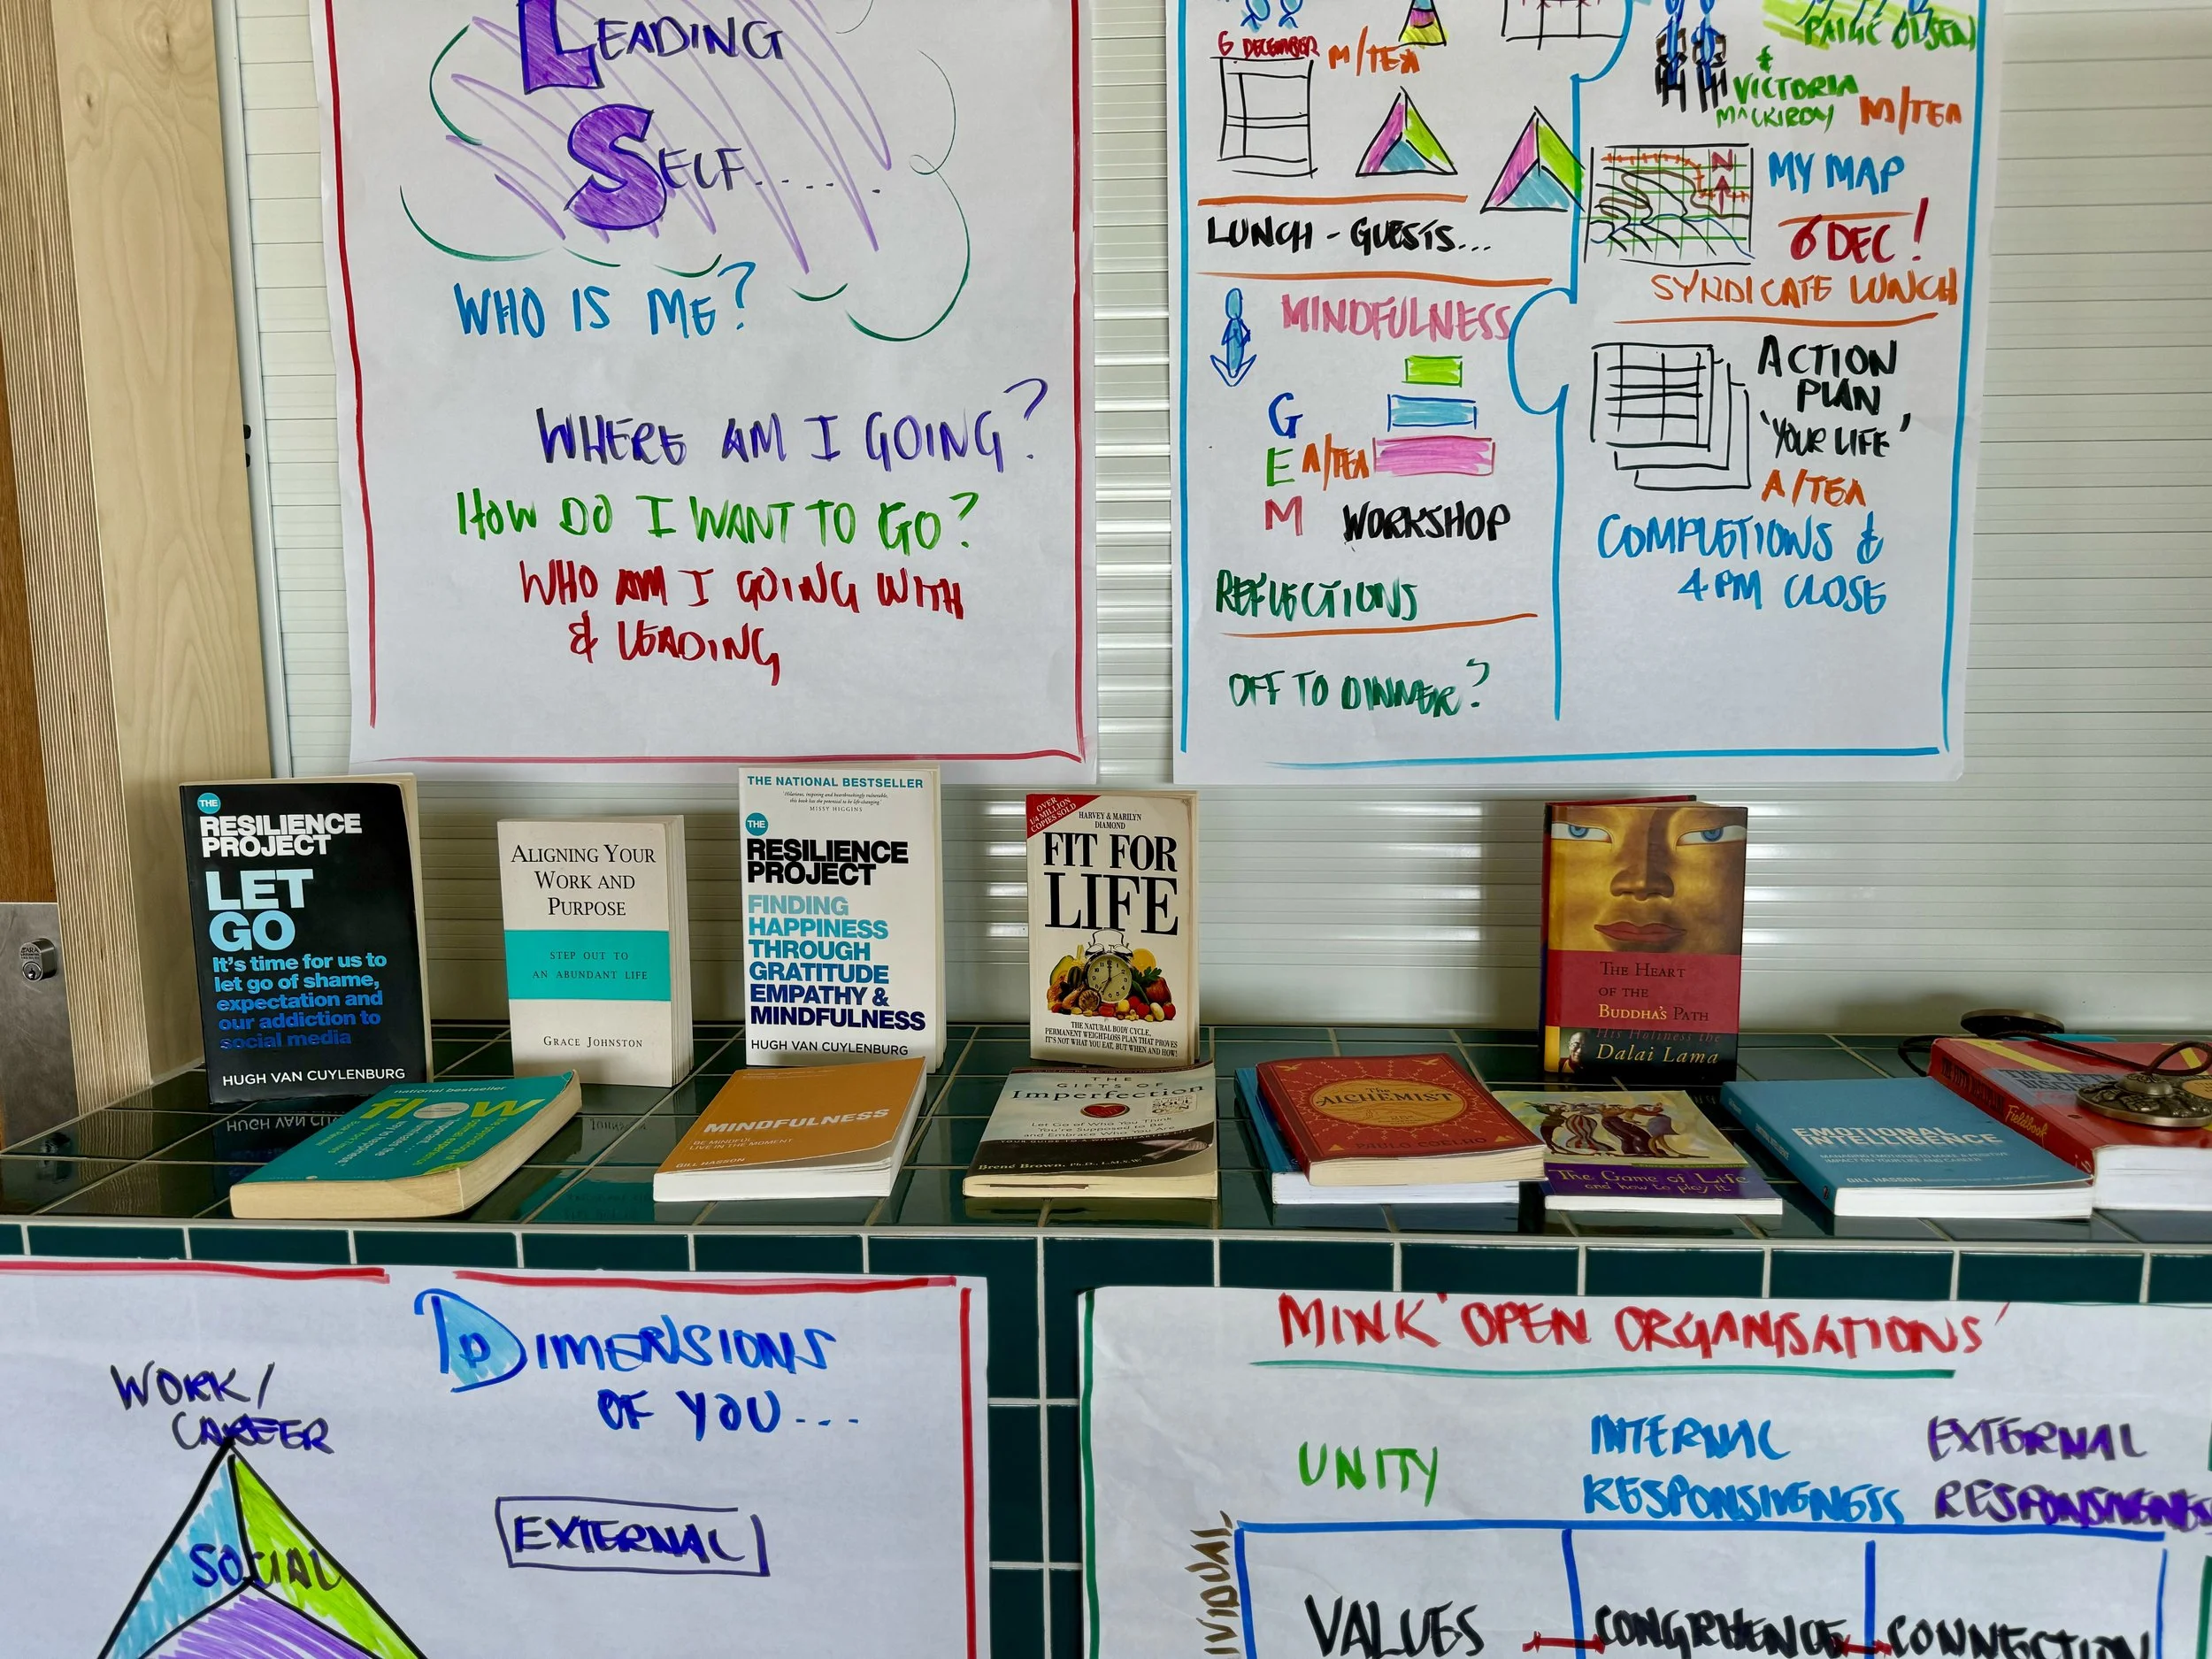 LEADING
SELF.....
WHO IS ME?
WHERE AM I GOING?
HOW DO I WANT TO GO?
WHO AM I GOING WITH
& LEADING
6 DECEMBER
M/TEA
LUNCH - GUESTS...
MINDFULNESS
G
E A/TEA
M WORKSHOP
REFLECTIONS
OFF TO DINNER?
PAIGE OLSEN
&
VICTORIA
MACKIRDY M/TEA
N
MY MAP
6 DEC!
SYNDICATE LUNCH
ACTION
PLAN
'YOUR LIFE'
A/TEA
COMPLETIONS &
4 PM CLOSE
THE
RESILIENCE
PROJECT
LET
GO
It's time for us to
let go of shame,
expectation and
our addiction to
social media
HUGH VAN CUYLENBURG
ALIGNING YOUR
WORK AND
PURPOSE
STEP OUT TO
AN ABUNDANT LIFE
GRACE JOHNSTON
THE NATIONAL BESTSELLER
MISSY HIGGINS
THE
RESILIENCE
PROJECT
FINDING
HAPPINESS
THROUGH
GRATITUDE
EMPATHY &
MINDFULNESS
HUGH VAN CUYLENBURG
OVER
1/4 MILLION
COPIES SOLD
HARVEY & MARILYN
DIAMOND
FIT FOR
LIFE
THE NATURAL BODY CYCLE,
PERMANENT WEIGHT-LOSS PLAN THAT PROVES
IT'S NOT WHAT YOU EAT, BUT WHEN AND HOW!
THE HEART
OF THE
BUDDHA'S PATH
His Holiness the
Dalai Lama
national bestseller
flow
MINDFULNESS
BE MINDFUL
LIVE IN THE MOMENT
GILL HASSON
THE
GIFTS OF
Imperfection
Let Go of Who You Think
You're Supposed to Be
and Embrace Who You Are
Brené Brown, Ph.D., L.M.S.W.
The
ALCHEMIST
PAULO COELHO
The Game of Life
and how to play it
EMOTIONAL
INTELLIGENCE
MANAGING EMOTIONS TO MAKE A POSITIVE
IMPACT ON YOUR LIFE AND CAREER
GILL HASSON
Fieldbook
DIMENSIONS
OF YOU...
WORK/
CAREER
SOCIAL
EXTERNAL
MINK 'OPEN ORGANISATIONS'
UNITY
INTERNAL
RESPONSIVENESS
EXTERNAL
RESPONSIVENESS
VALUES
CONGRUENCE
CONNECTION